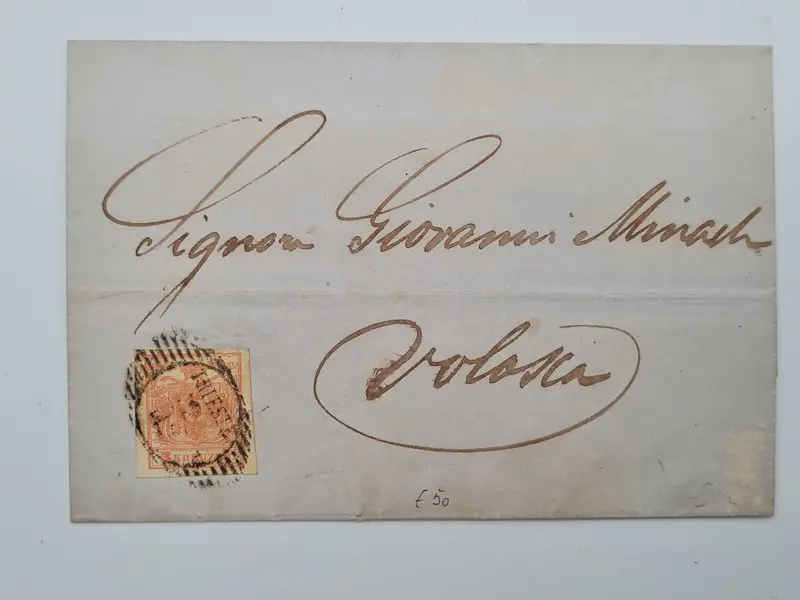 Signor Giovanni Minach
Voloska
TRIEST
KREU
€ 50